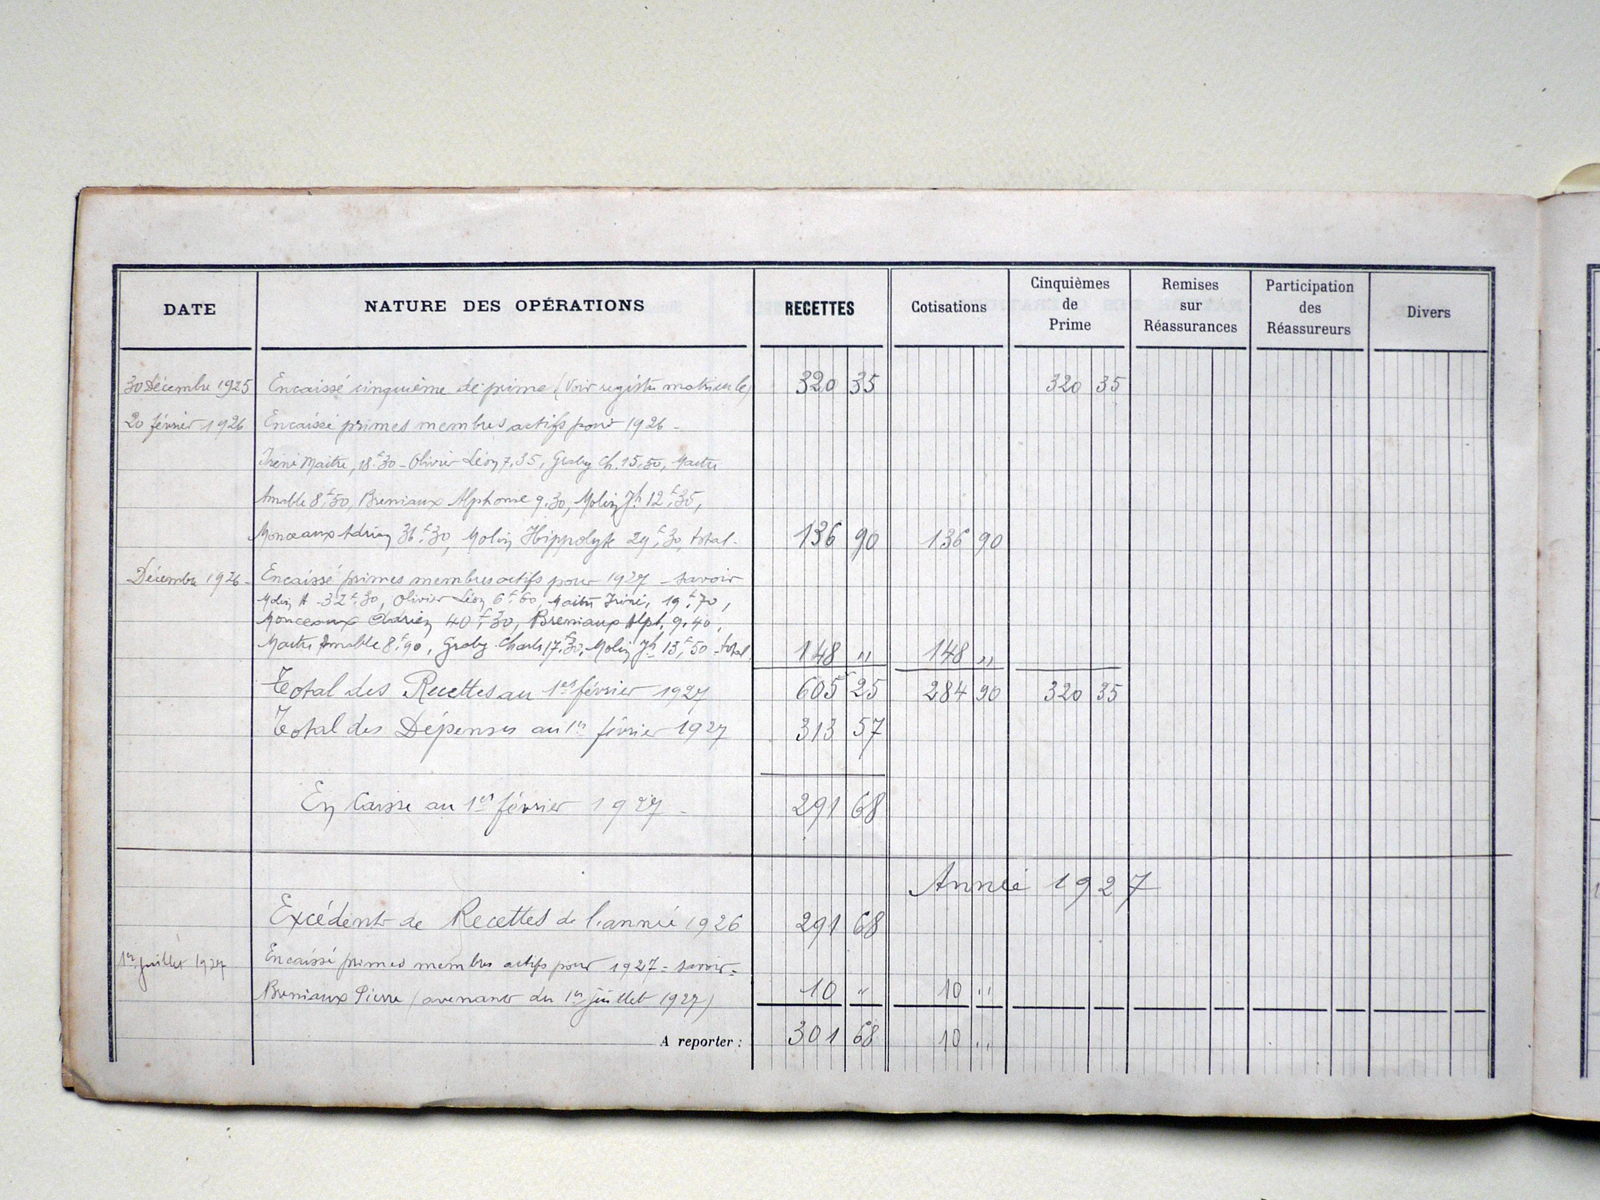 DATE NATURE DES OPÉRATIONS RECETTES Cotisations Cinquièmes de Prime Remises sur Réassurances Participation des Réassureurs Divers
30 Décembre 1925 Encaissé cinquième de prime (Voir registre matricule) 320 35 320 35
20 février 1926 Encaissé primes membres actifs pour 1926 -
Iréné Maitre, 18f30 - Olivier Léon 7,35, Graby Ch. 15,50, Maitre
Amable 8f50, Breniaux Alphonse 9,30, Molin Jh 12f35,
Monceaux Adrien 36f30, Molin Hippolyte 29f30, total. 136 90 136 90
Décembre 1926 - Encaissé primes membres actifs pour 1927 - savoir
Molin H - 32f30, Olivier Léon 6f60, Maitre Iréné, 19f70,
Monceaux Adrien 40f30, Breniaux Alph, 9.40,
Maitre Amable 8f90, Graby Charles 17f30, Molin Jh 13f50 - total 148 " 148 "
Total des Recettes au 1er février 1927 605 25 284 90 320 35
Total des Dépenses au 1er février 1927 313 57
En Caisse au 1er février 1927 - 291 68
Année 1927
Excédent de Recettes de l'année 1926 291 68
1er juillet 1927 Encaissé primes membres actifs pour 1927 = savoir =
Breniaux Pierre (avenant du 1er juillet 1927) 10 " 10 "
A reporter : 301 68 10 "